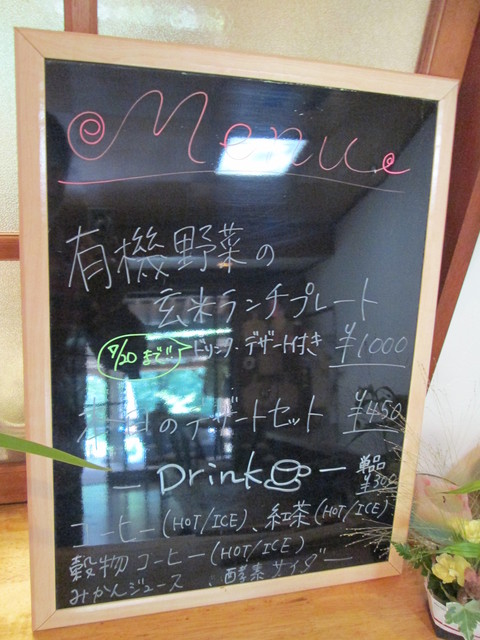 Menu
有機野菜の
玄米ランチプレート
9/20まで!! ドリンク・デザート付き ¥1000
本日のデザートセット ¥450
— Drink — 単品 ¥300
コーヒー(HOT/ICE)、紅茶(HOT/ICE)
穀物コーヒー(HOT/ICE)
みかんジュース 酵素サイダー